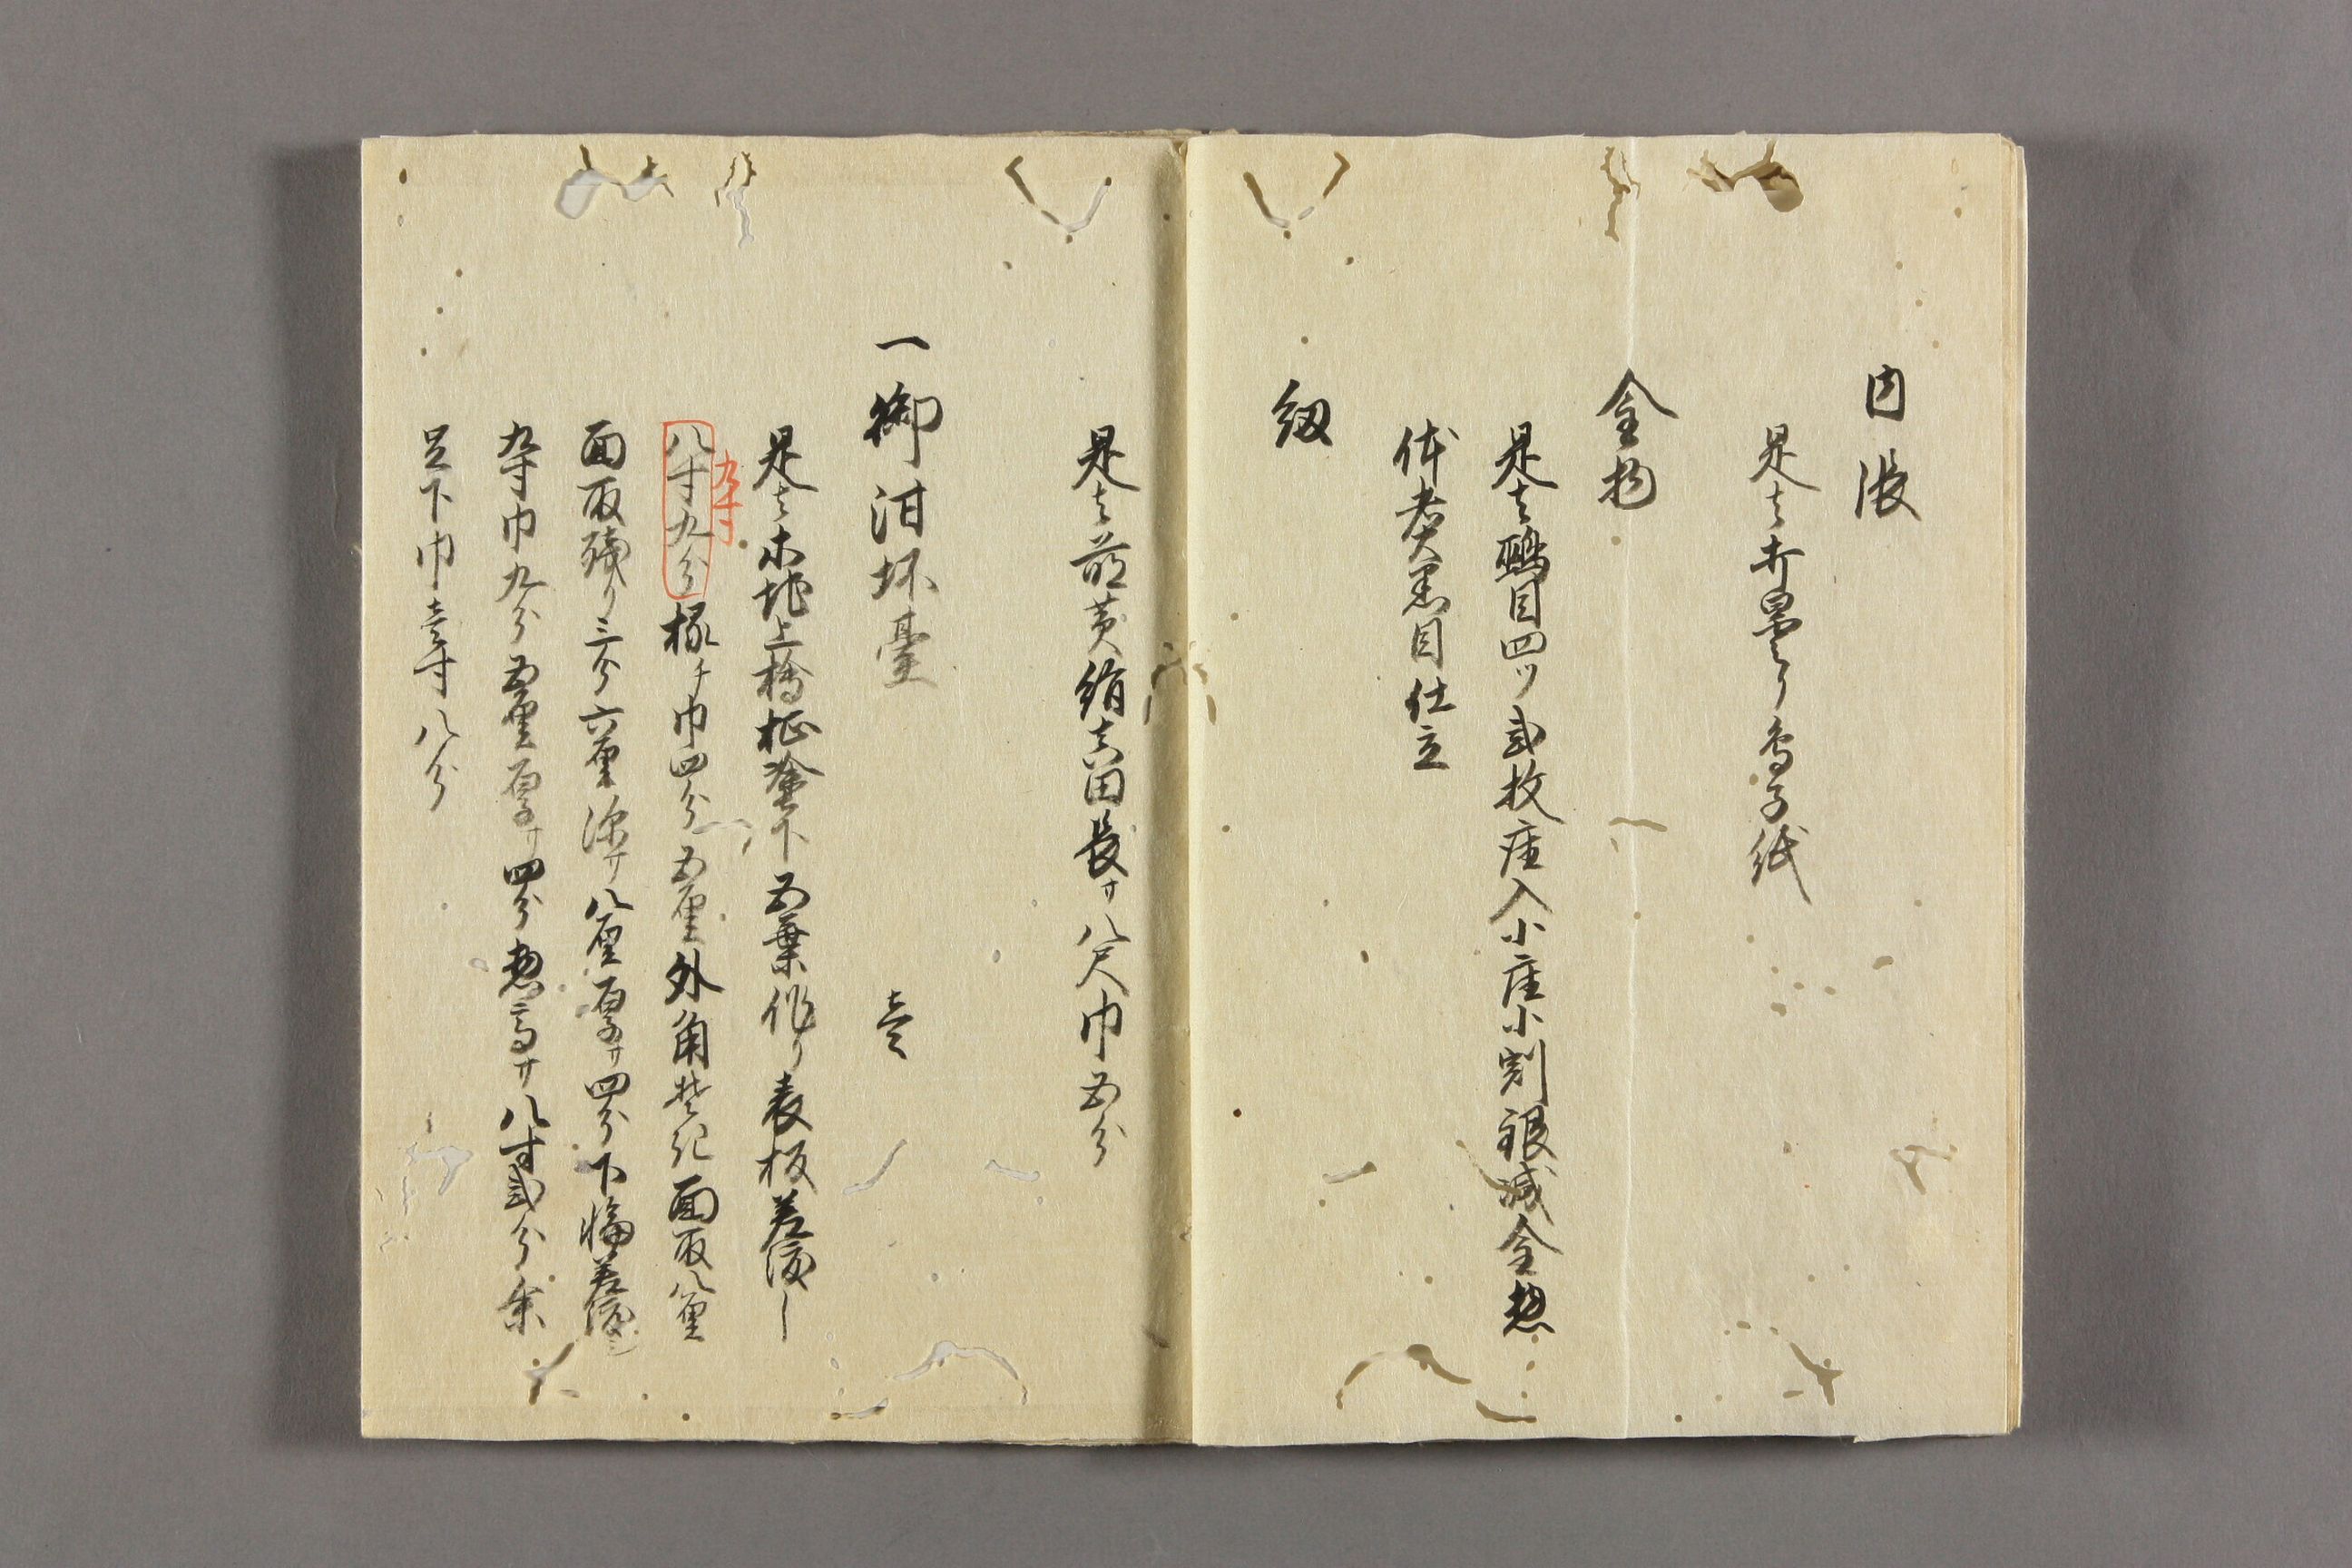 内張
是ハ打曇り鳥子紙
金物
是ハ鵐目四ツ弐枚座入小座小刻銀減金惣
体煮黒目仕立
紐
是ハ萌黄絹真田長サ八尺巾五分
一御泔坏臺 壱
是ハ木地上檜柾塗下五葉作り表板差渡し
九寸
八寸九分椽チ巾四分五厘外角其記面取八厘
面取残り三分六厘深サ八厘厚サ四分下輪差渡シ
九寸巾九分五厘厚サ四分惣高サ八寸弐分余
足下巾壱寸八分